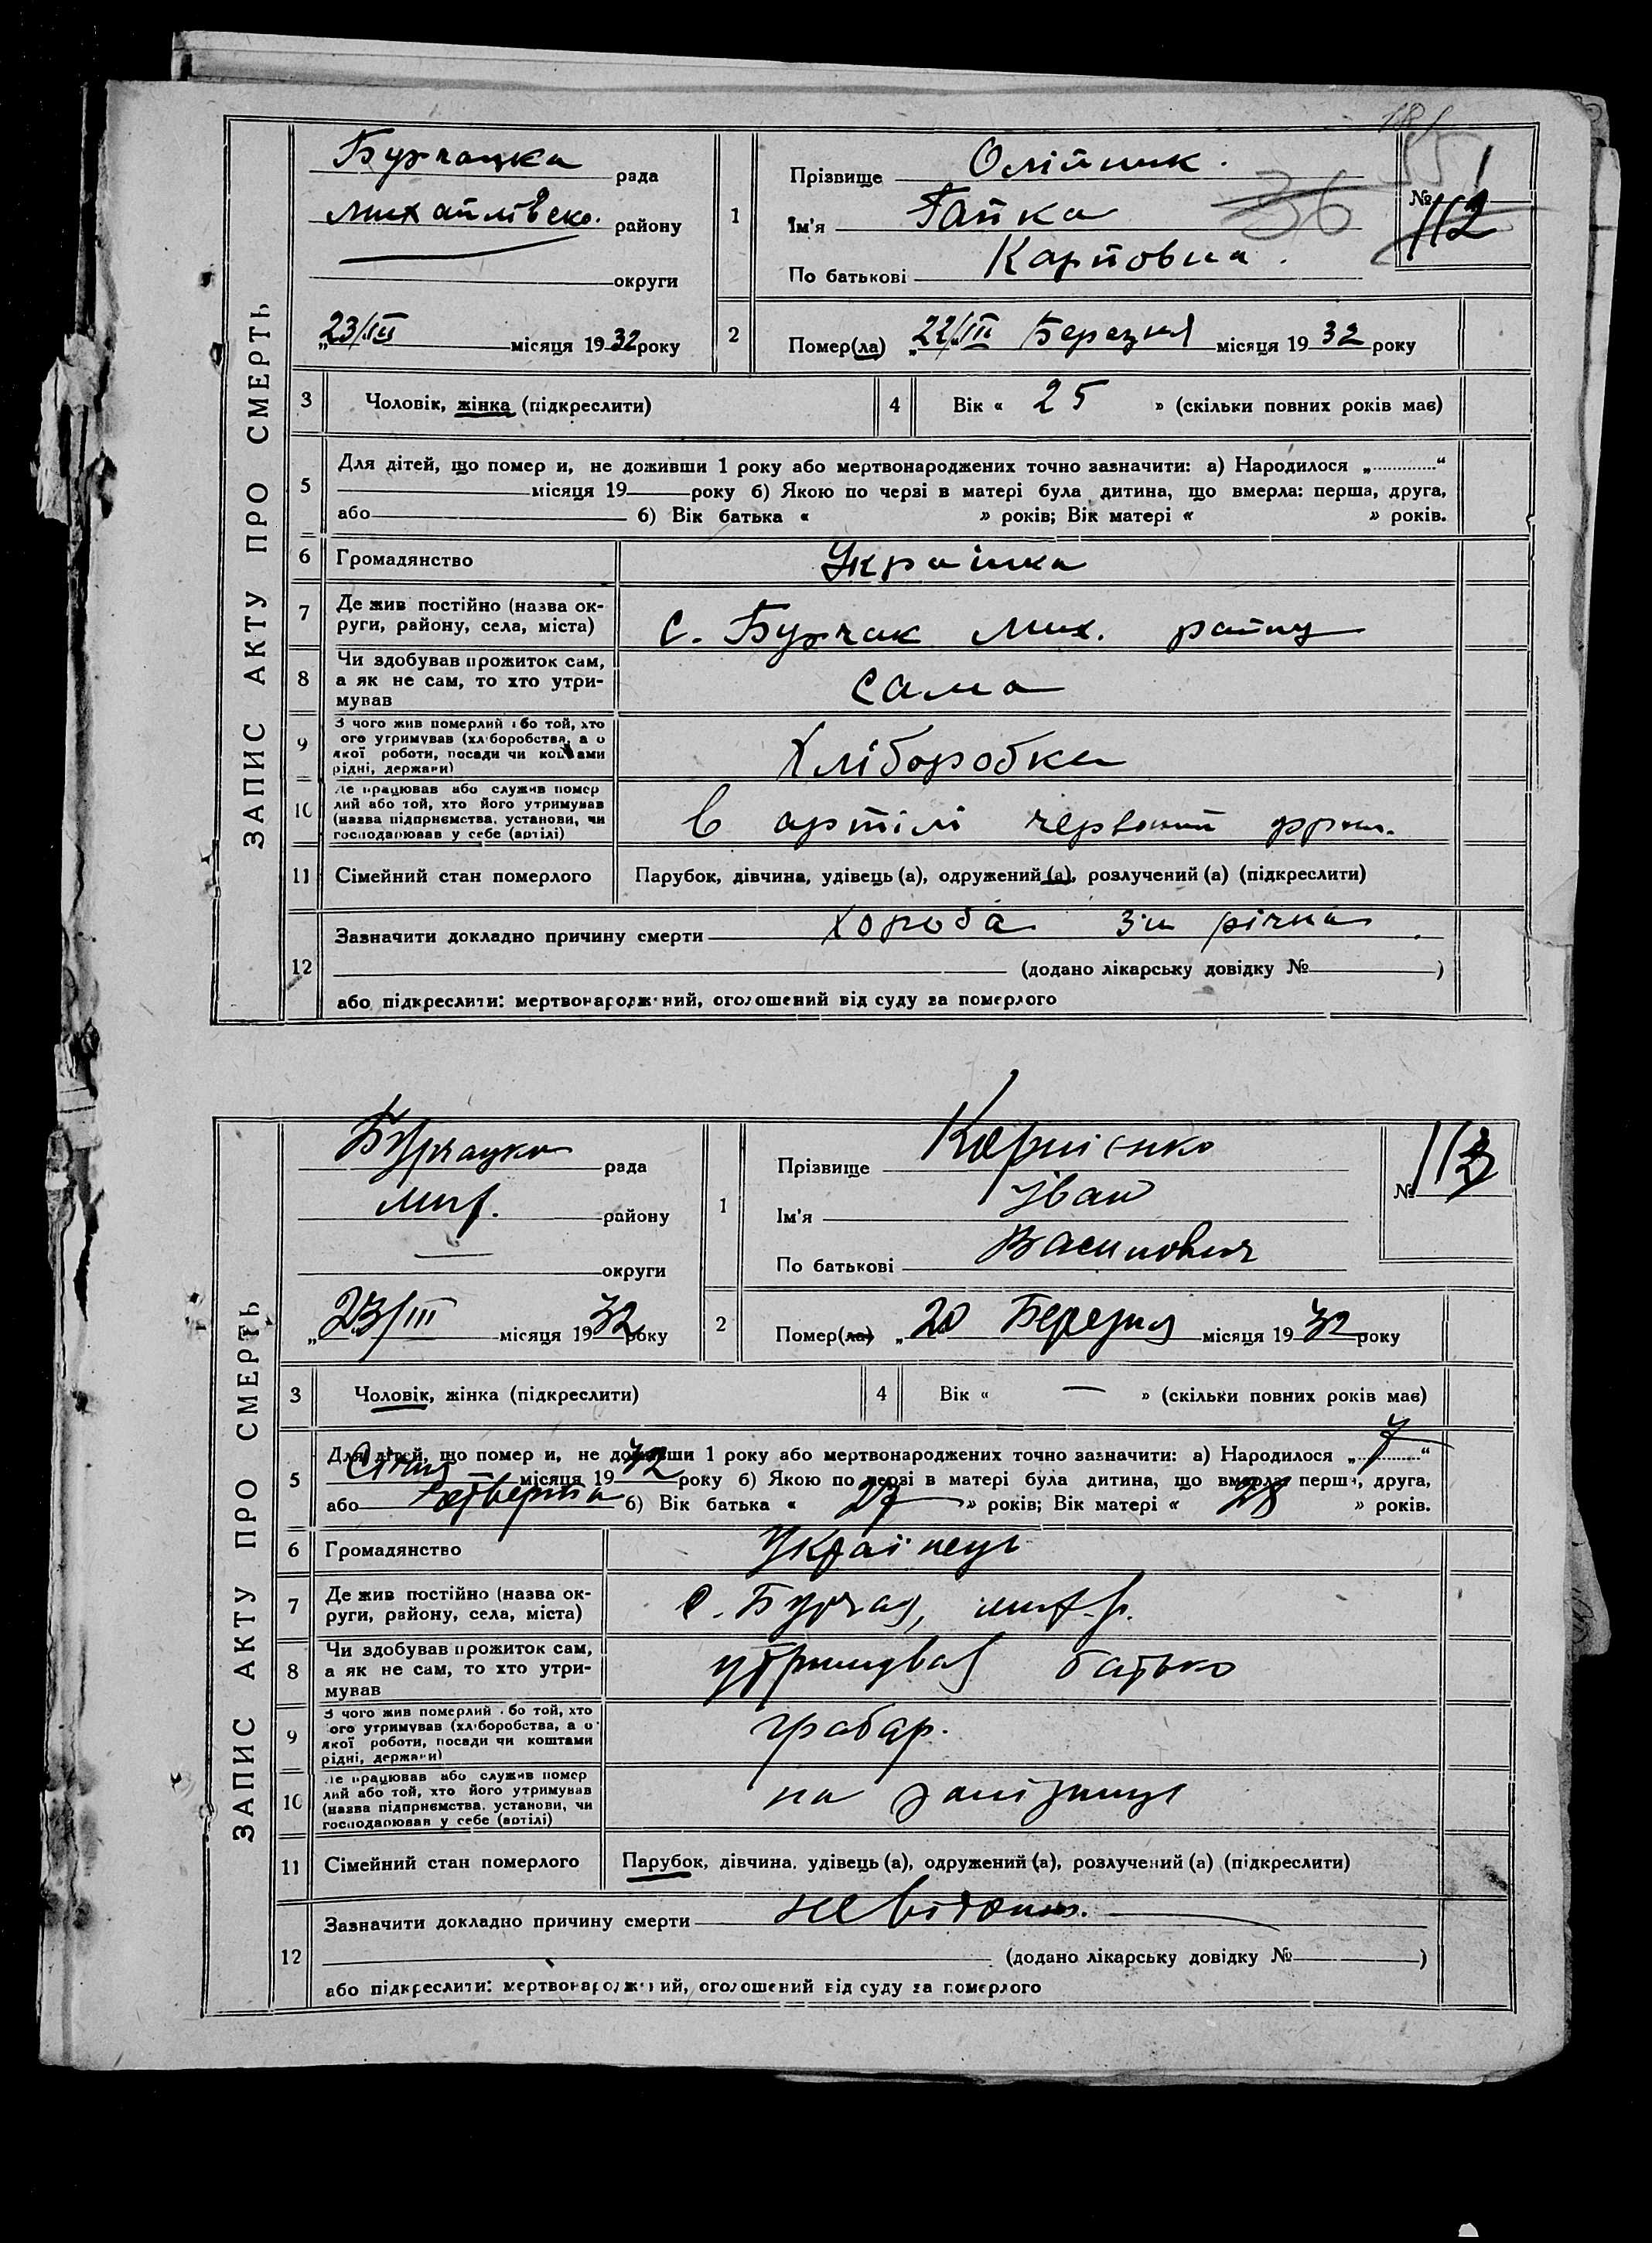 ЗАПИС АКТУ ПРО СМЕРТЬ
Бурчацка рада
Михайлівско. району
округи
„23/III місяця 1932 року
1
Прізвище Олійник.
Ім'я Гапка
По батькові Карповна.
36
№ 112
2
Помер(ла) „22/III Березня місяця 1932 року
3 Чоловік, жінка (підкреслити)
4 Вік « 25 » (скільки повних років має)
5 Для дітей, що помер и, не доживши 1 року або мертвонароджених точно зазначити: а) Народилося „............“
місяця 19 року б) Якою по черзі в матері була дитина, що вмерла: перша, друга,
або б) Вік батька « » років; Вік матері « » років.
6 Громадянство Українка
7 Де жив постійно (назва ок-
руги, району, села, міста) с. Бурчак Мих. району
8 Чи здобував прожиток сам,
а як не сам, то хто утри-
мував сама
9 З чого жив померлий або той, хто
ого утримував (хліборобства, а о
якої роботи, посади чи коштами
рідні, держави) Хліборобка
10 Де працював або служив помер
лий або той, хто його утримував
(назва підприємства, установи, чи
господарював у себе (артілі) в артілі червоний
11 Сімейний стан померлого Парубок, дівчина, удівець (а), одружений (а), розлучений (а) (підкреслити)
12 Зазначити докладно причину смерти хороба 3и річна
(додано лікарську довідку № )
або підкреслити: мертвонароджений, оголошений від суду за померлого
ЗАПИС АКТУ ПРО СМЕРТЬ
Бурчацка рада
Мих. району
округи
„23/III місяця 1932 року
1
Прізвище Корнієнко
Ім'я Іван
По батькові Васильович
№ 113
2
Помер(ла) „20 Березня місяця 1932 року
3 Чоловік, жінка (підкреслити)
4 Вік « — » (скільки повних років має)
5 Для дітей, що помер и, не доживши 1 року або мертвонароджених точно зазначити: а) Народилося „7“
Січня місяця 1932 року б) Якою по черзі в матері була дитина, що вмерла: перша, друга,
або четверта б) Вік батька « 27 » років; Вік матері « 28 » років.
6 Громадянство Українець
7 Де жив постійно (назва ок-
руги, району, села, міста) с. Бурчак, мих. р.
8 Чи здобував прожиток сам,
а як не сам, то хто утри-
мував утримував батько
9 З чого жив померлий або той, хто
ого утримував (хліборобства, а о
якої роботи, посади чи коштами
рідні, держави) грабар.
10 Де працював або служив помер
лий або той, хто його утримував
(назва підприємства, установи, чи
господарював у себе (артілі) на залізниці
11 Сімейний стан померлого Парубок, дівчина, удівець (а), одружений (а), розлучений (а) (підкреслити)
12 Зазначити докладно причину смерти невідома.
(додано лікарську довідку № )
або підкреслити: мертвонароджений, оголошений від суду за померлого